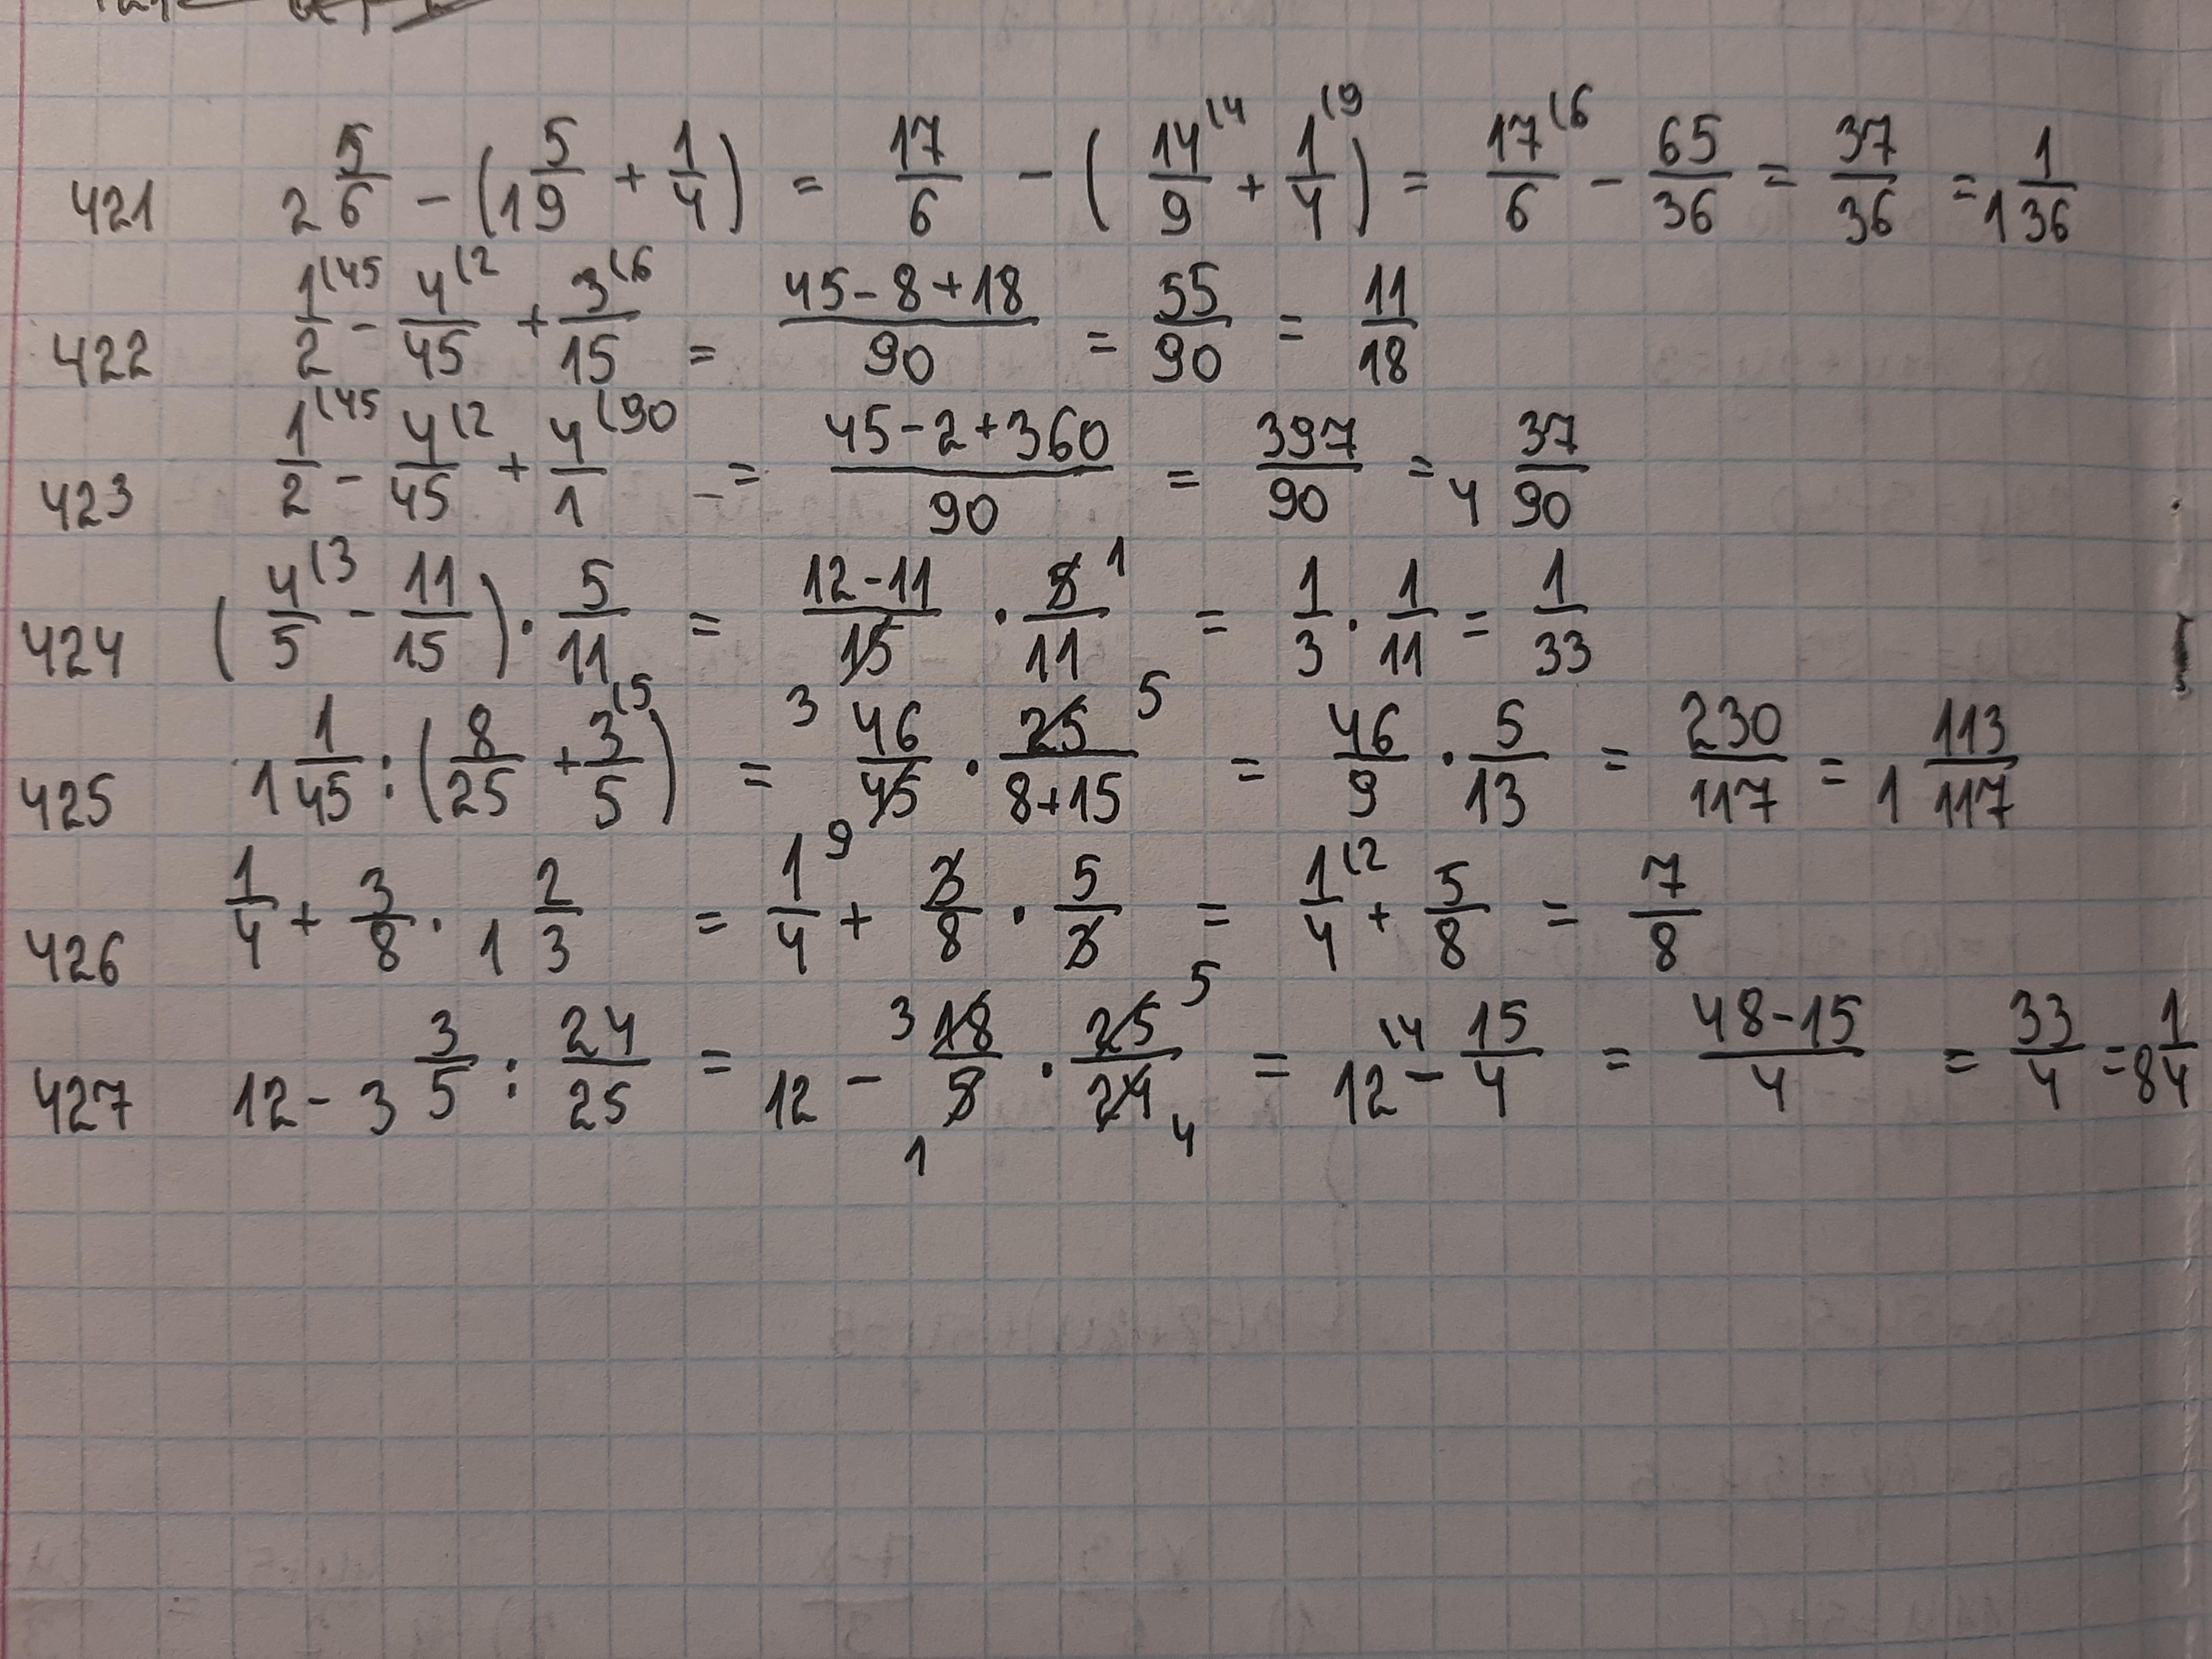 421 2 5/6 - (1 5/9 + 1/4) = 17/6 - (14(4/9 + 1(9/4) = 17(6/6 - 65/36 = 37/36 = 1 1/36
422 1(45/2 - 4(2/45 + 3(6/15 = 45-8+18/90 = 55/90 = 11/18
423 1(45/2 - 4(2/45 + 4(90/1 -= 45-2+360/90 = 397/90 = 4 37/90
424 (4(3/5 - 11/15) · 5/11 = 12-11/15 · 5 1/11 = 1/3 · 1/11 = 1/33
425 1 1/45 : (8/25 + 3(5/5) = 46/45 · 25 5/8+15 = 46/9 · 5/13 = 230/117 = 1 113/117
426 1/4 + 3/8 · 1 2/3 = 1/4 + 3/8 · 5/3 = 1(2/4 + 5/8 = 7/8
427 12 - 3 3/5 : 24/25 = 12 - 3 18/5 1 · 25 5/24 4 = 12(4 - 15/4 = 48-15/4 = 33/4 = 8 1/4